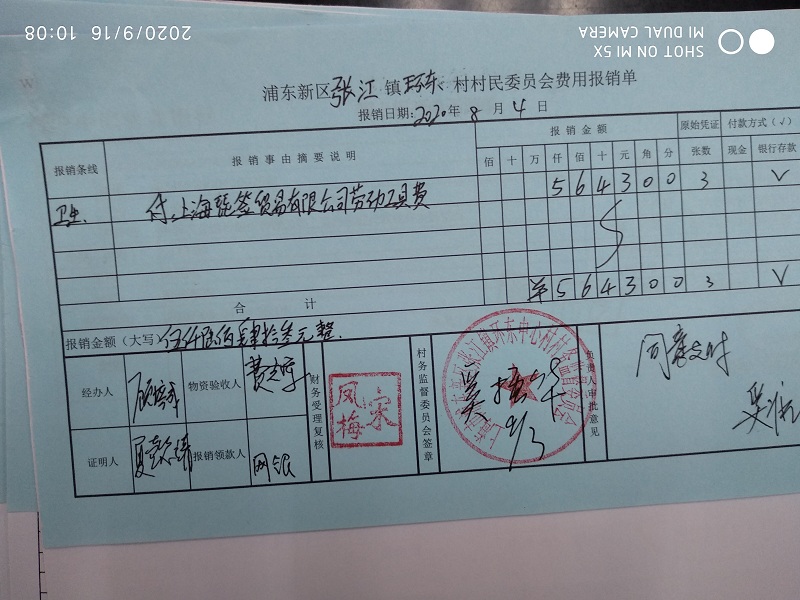 2020/9/16 10:08
SHOT ON MI 5X
MI DUAL CAMERA
浦东新区张江镇环东村村民委员会费用报销单
报销日期:2020年8月4日
报销条线 报销事由摘要说明 报销金额 原始凭证 付款方式(√)
佰 十 万 仟 佰 十 元 角 分 张数 现金 银行存款
卫生 付:上海 贸易有限公司劳动工具费 5 6 4 3 0 0 3 √
合计 ¥ 5 6 4 3 0 0 3 √
报销金额(大写)伍仟陆佰肆拾叁元整.
经办人 物资验收人 财务受理复核 凤梅宋 村务监督委员会签章 9/3 负责人审批意见 同意支付
证明人 报销领款人 网银